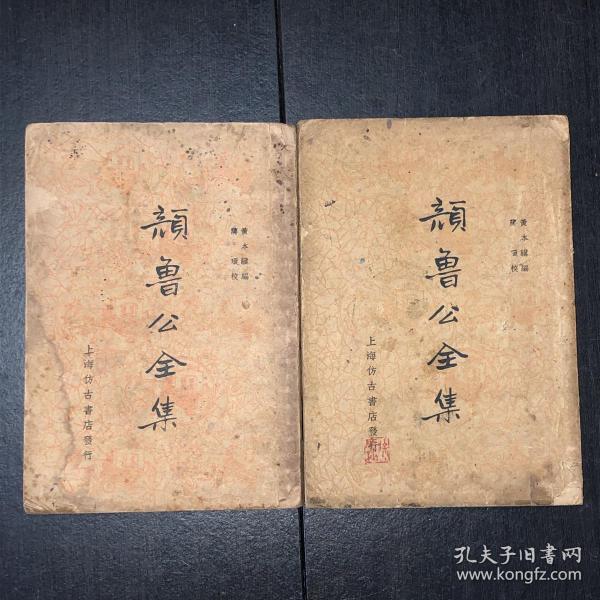 黃本驥編
蔣瓌校
顏魯公全集
上海仿古書店發行
黃本驥編
蔣瓌校
顏魯公全集
上海仿古書店發行
孔夫子旧书网
www.kongfz.com